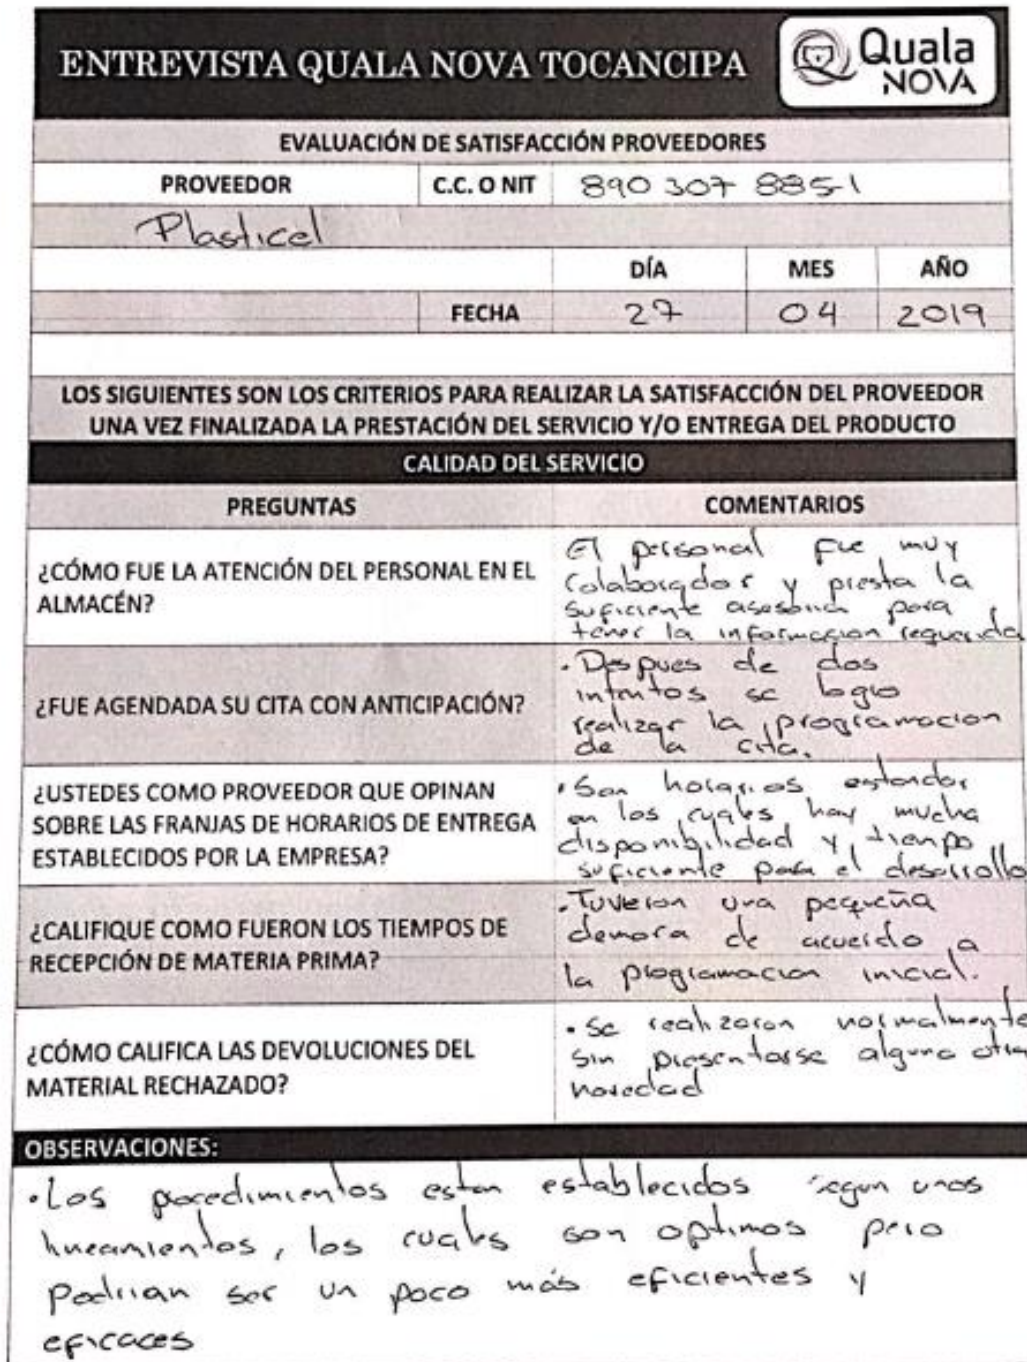 ENTREVISTA QUALA NOVA TOCANCIPA
Quala
NOVA
EVALUACIÓN DE SATISFACCIÓN PROVEEDORES
PROVEEDOR C.C. O NIT 890 307 885-1
Plasticel
DÍA MES AÑO
FECHA 27 04 2019
LOS SIGUIENTES SON LOS CRITERIOS PARA REALIZAR LA SATISFACCIÓN DEL PROVEEDOR
UNA VEZ FINALIZADA LA PRESTACIÓN DEL SERVICIO Y/O ENTREGA DEL PRODUCTO
CALIDAD DEL SERVICIO
PREGUNTAS COMENTARIOS
¿CÓMO FUE LA ATENCIÓN DEL PERSONAL EN EL
ALMACÉN?
El personal fue muy
colaborador y presta la
suficiente asesoria para
tener la informacion requerida
¿FUE AGENDADA SU CITA CON ANTICIPACIÓN?
• Despues de dos
intentos se logro
realizar la programacion
de la cita.
¿USTEDES COMO PROVEEDOR QUE OPINAN
SOBRE LAS FRANJAS DE HORARIOS DE ENTREGA
ESTABLECIDOS POR LA EMPRESA?
• Son horarios estandar
en los cuales hay mucha
disponibilidad y tiempo
suficiente para el desarrollo
¿CALIFIQUE COMO FUERON LOS TIEMPOS DE
RECEPCIÓN DE MATERIA PRIMA?
• Tuvieron una pequeña
demora de acuerdo a
la programacion inicial.
¿CÓMO CALIFICA LAS DEVOLUCIONES DEL
MATERIAL RECHAZADO?
• Se realizaron normalmente
sin presentarse alguna otra
novedad
OBSERVACIONES:
• Los procedimientos estan establecidos segun unos
lineamientos, los cuales son optimos pero
podrian ser un poco más eficientes y
eficaces